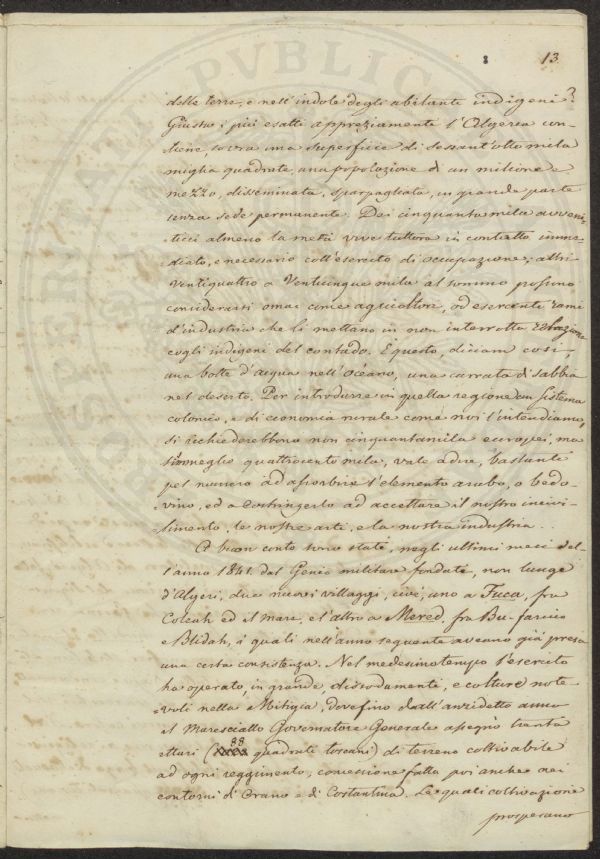 13
delle terre, e nell'indole degli abitanti indigeni?
Giusta i più esatti apprezziamenti l'Algeria con-
tiene, sovra una superficie di sessant'otto mila
miglia quadrate, una popolazione di un milione e
mezzo, disseminata, sparpagliata, in grande parte
senza sede permanente. Dei cinquanta mila avven-
ticci almeno la metà vive tuttora in contatto imme-
diato, e necessario coll'esercito di occupazione; altri
ventiquattro a venticinque mila al sommo possono
considerarsi omai come agricoltori, od esercenti rami
d'industria che li mettano in non interrotta relazione
cogli indigeni del contado. È questo, diciam così,
una botte d'acqua nell'Oceano, una carrata di sabbia
nel deserto. Per introdurre in quella regione un sistema
colonico, e di economia rurale come noi l'intendiamo,
si richiederebbono non cinquantamila europei, ma
sibbene quattrocento mila, vale a dire, bastante
pel numero ad assorbire l'elemento arabo, o bedo-
vino, ed a costringerlo ad accettare il nostro incivi-
limento, le nostre arti, e la nostra industria.
A buon conto sono stati, negli ultimi mesi del-
l'anno 1841 dal Genio militare fondati, non lunge
d'Algeri, due nuovi villaggi, cioè, uno a Fuca, fra
Coleah ed il mare, e l'altro a Mered, fra Bu-farico
e Blidah, i quali nell'anno seguente aveano già presa
una certa consistenza. Nel medesimo tempo l'esercito
ha operato, in grande, dissodamenti, e colture note-
voli nella Mitigia, dove fino dall'anzidetto anno
il Maresciallo Governatore Generale assegnò trenta
ettari (88 quadrati toscani) di terreno coltivabile
ad ogni reggimento; concessione fatta poi anche nei
contorni di Orano e di Costantina. Le quali coltivazione
prosperano